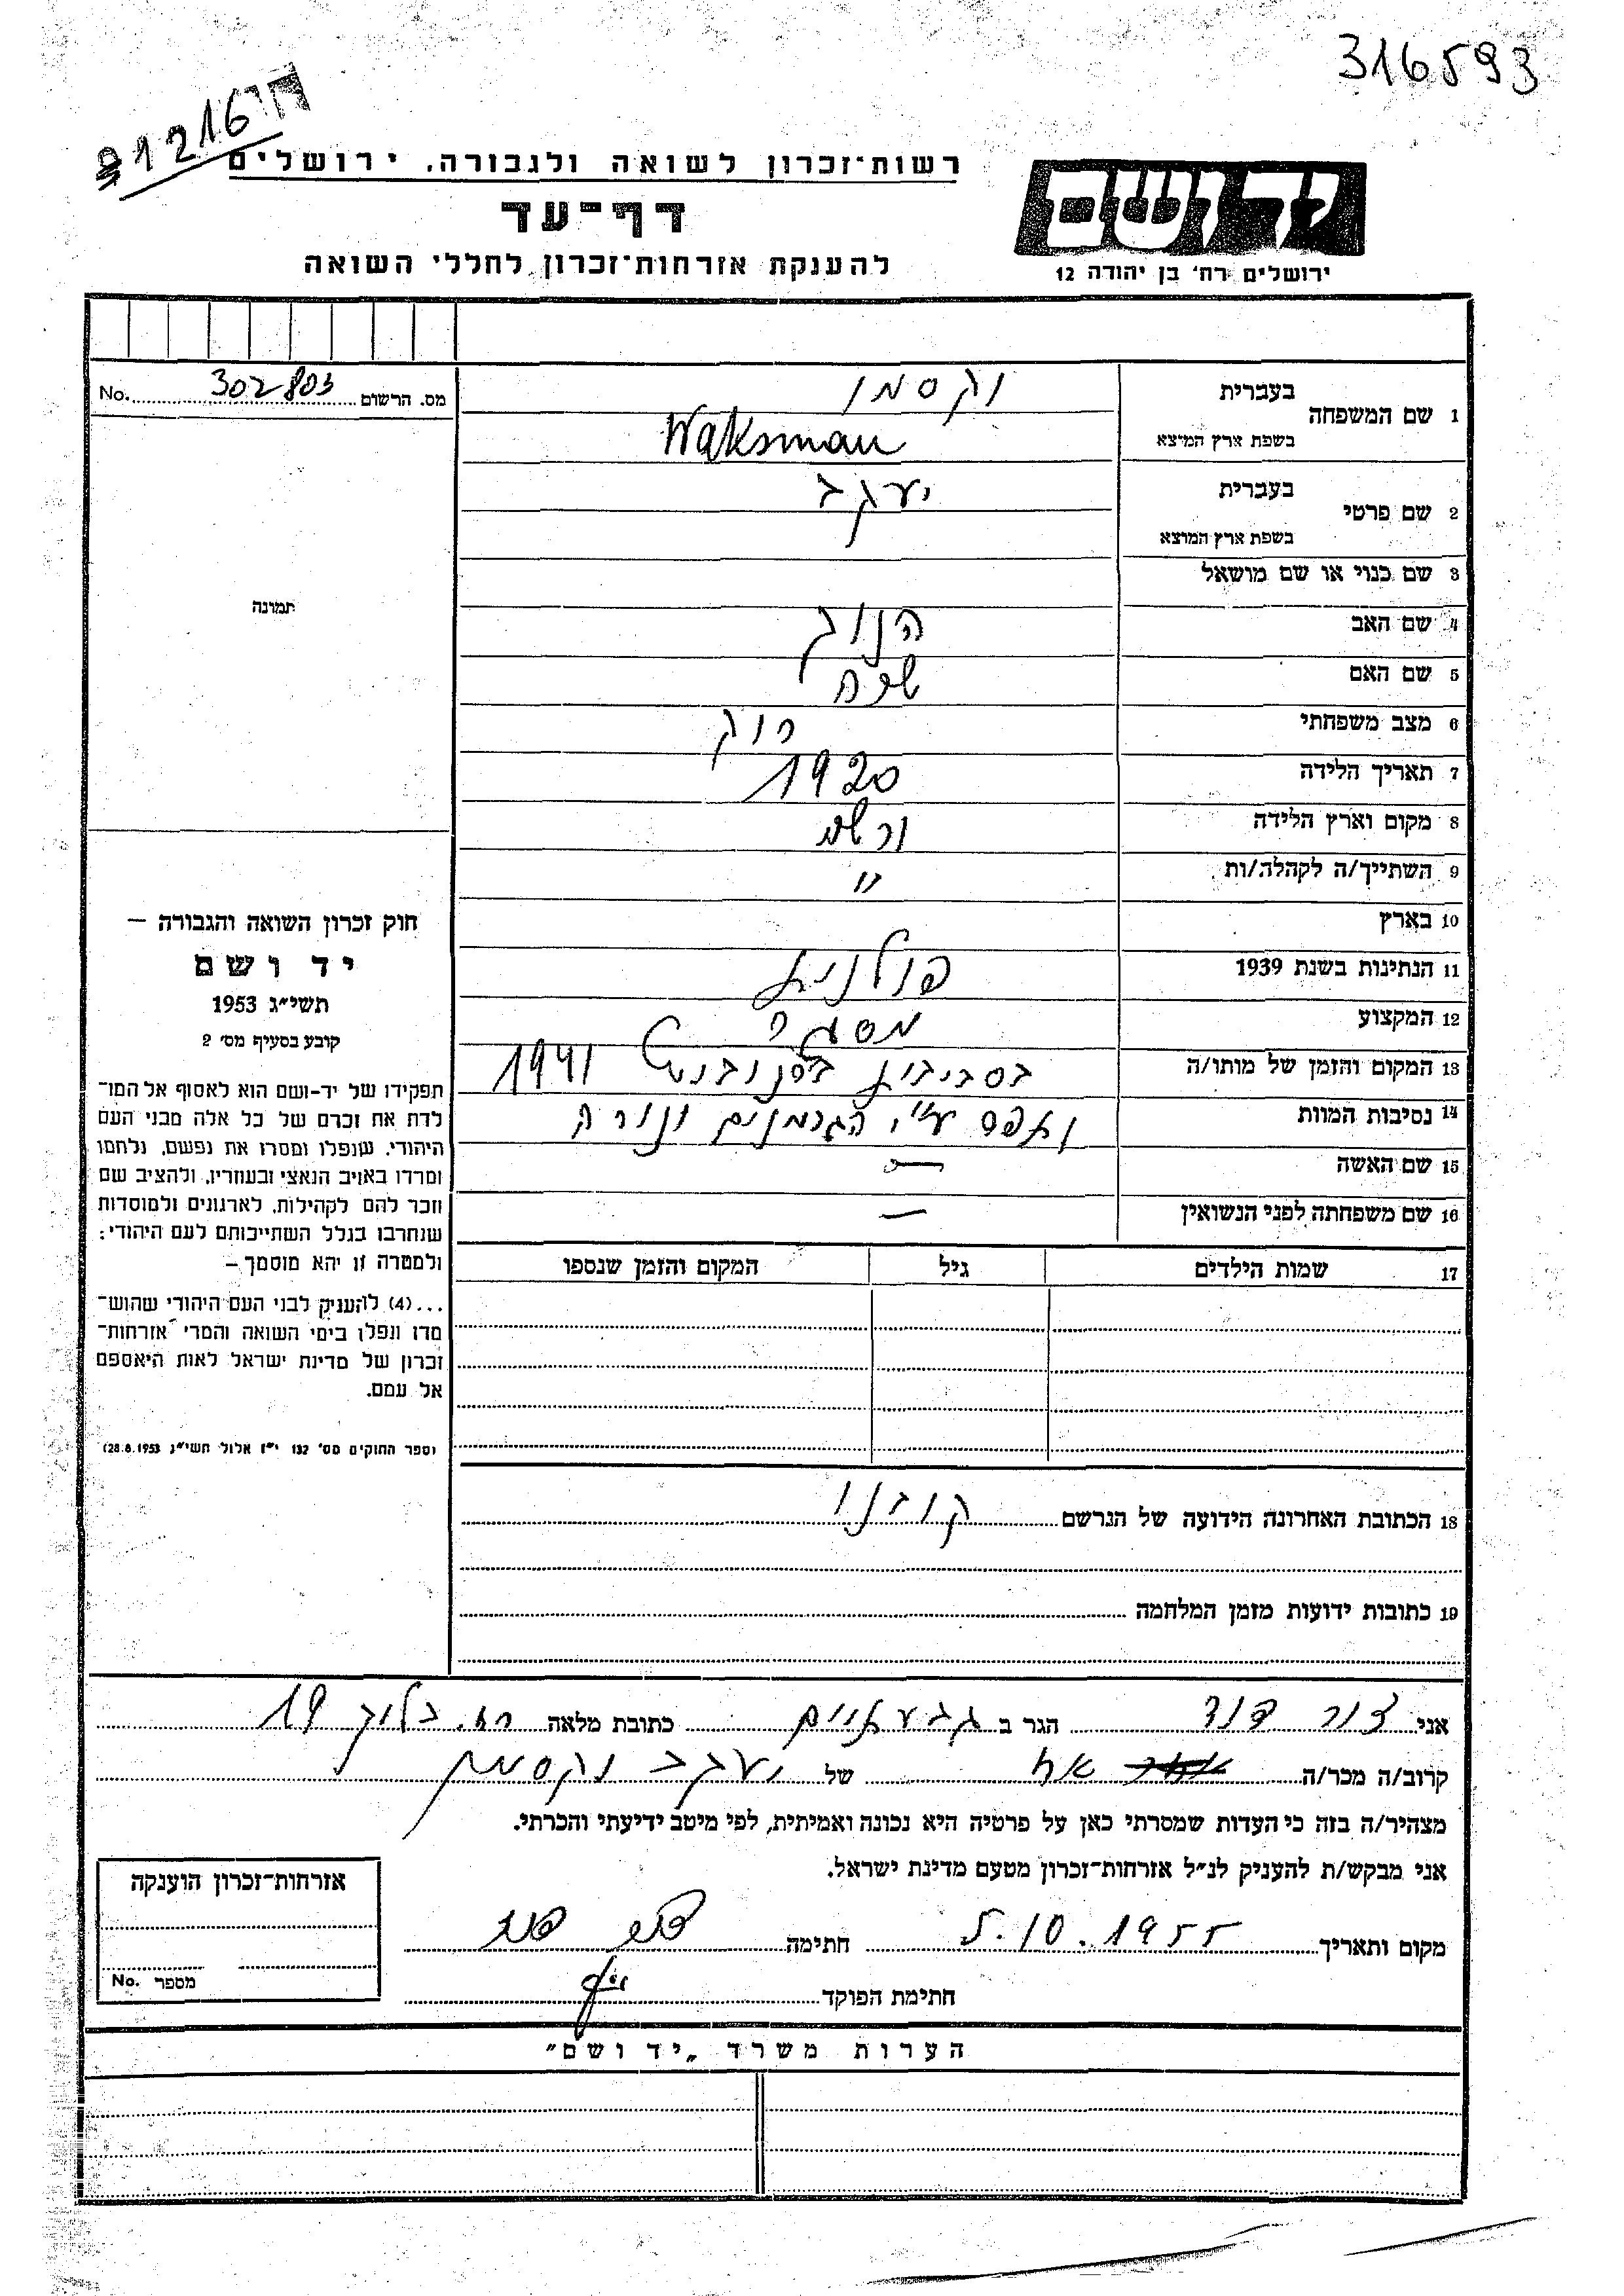 316593
21216
רשות-זכרון לשואה ולגבורה, ירושלים
ידושם
דף-עד
להענקת אזרחות-זכרון לחללי השואה
ירושלים רח' בן יהודה 12
מס. הרשום 302803 No.
1 שם המשפחה
בעברית וקסמן
בשפת ארץ המוצא Waksman
2 שם פרטי
בעברית יעקב
בשפת ארץ המוצא
3 שם כנוי או שם מושאל
תמונה
4 שם האב
5 שם האם שרה
6 מצב משפחתי רוק
7 תאריך הלידה 1920
8 מקום וארץ הלידה ורשה
9 השתייך/ה לקהלה/ות "
10 בארץ
11 הנתינות בשנת 1939 פולנית
12 המקצוע
13 המקום והזמן של מותו/ה בסביבות 1941
14 נסיבות המוות נתפס ע"י הגרמנים ונורה
15 שם האשה —
16 שם משפחתה לפני הנשואין —
17 שמות הילדים גיל המקום והזמן שנספו
חוק זכרון השואה והגבורה —
יד ושם
תשי"ג 1953
קובע בסעיף מס' 2
תפקידו של יד-ושם הוא לאסוף אל המו-
לדת את זכרם של כל אלה מבני העם
היהודי, שנפלו ומסרו את נפשם, נלחמו
ומרדו באויב הנאצי ובעוזריו, ולהציב שם
וזכר להם לקהילות, לארגונים ולמוסדות
שנחרבו בגלל השתייכותם לעם היהודי;
ולמטרה זו יהא מוסמך —
...(4) להעניק לבני העם היהודי שהוש-
מדו ונפלו בימי השואה והמרי אזרחות-
זכרון של מדינת ישראל לאות היאספם
אל עמם.
(ספר החוקים מס' 132 י"ז אלול תשי"ג 28.8.1953)
18 הכתובת האחרונה הידועה של הנרשם
19 כתובות ידועות מזמן המלחמה
אני צור דוד הגר ב גבעתיים כתובת מלאה רח. 19
קרוב/ה מכר/ה אח של יעקב וקסמן
מצהיר/ה בזה כי העדות שמסרתי כאן על פרטיה היא נכונה ואמיתית, לפי מיטב ידיעתי והכרתי.
אני מבקש/ת להעניק לנ"ל אזרחות-זכרון מטעם מדינת ישראל.
מקום ותאריך 5.10.1955 חתימה
חתימת הפוקד
אזרחות-זכרון הוענקה
מספר No.
הערות משרד „יד ושם"